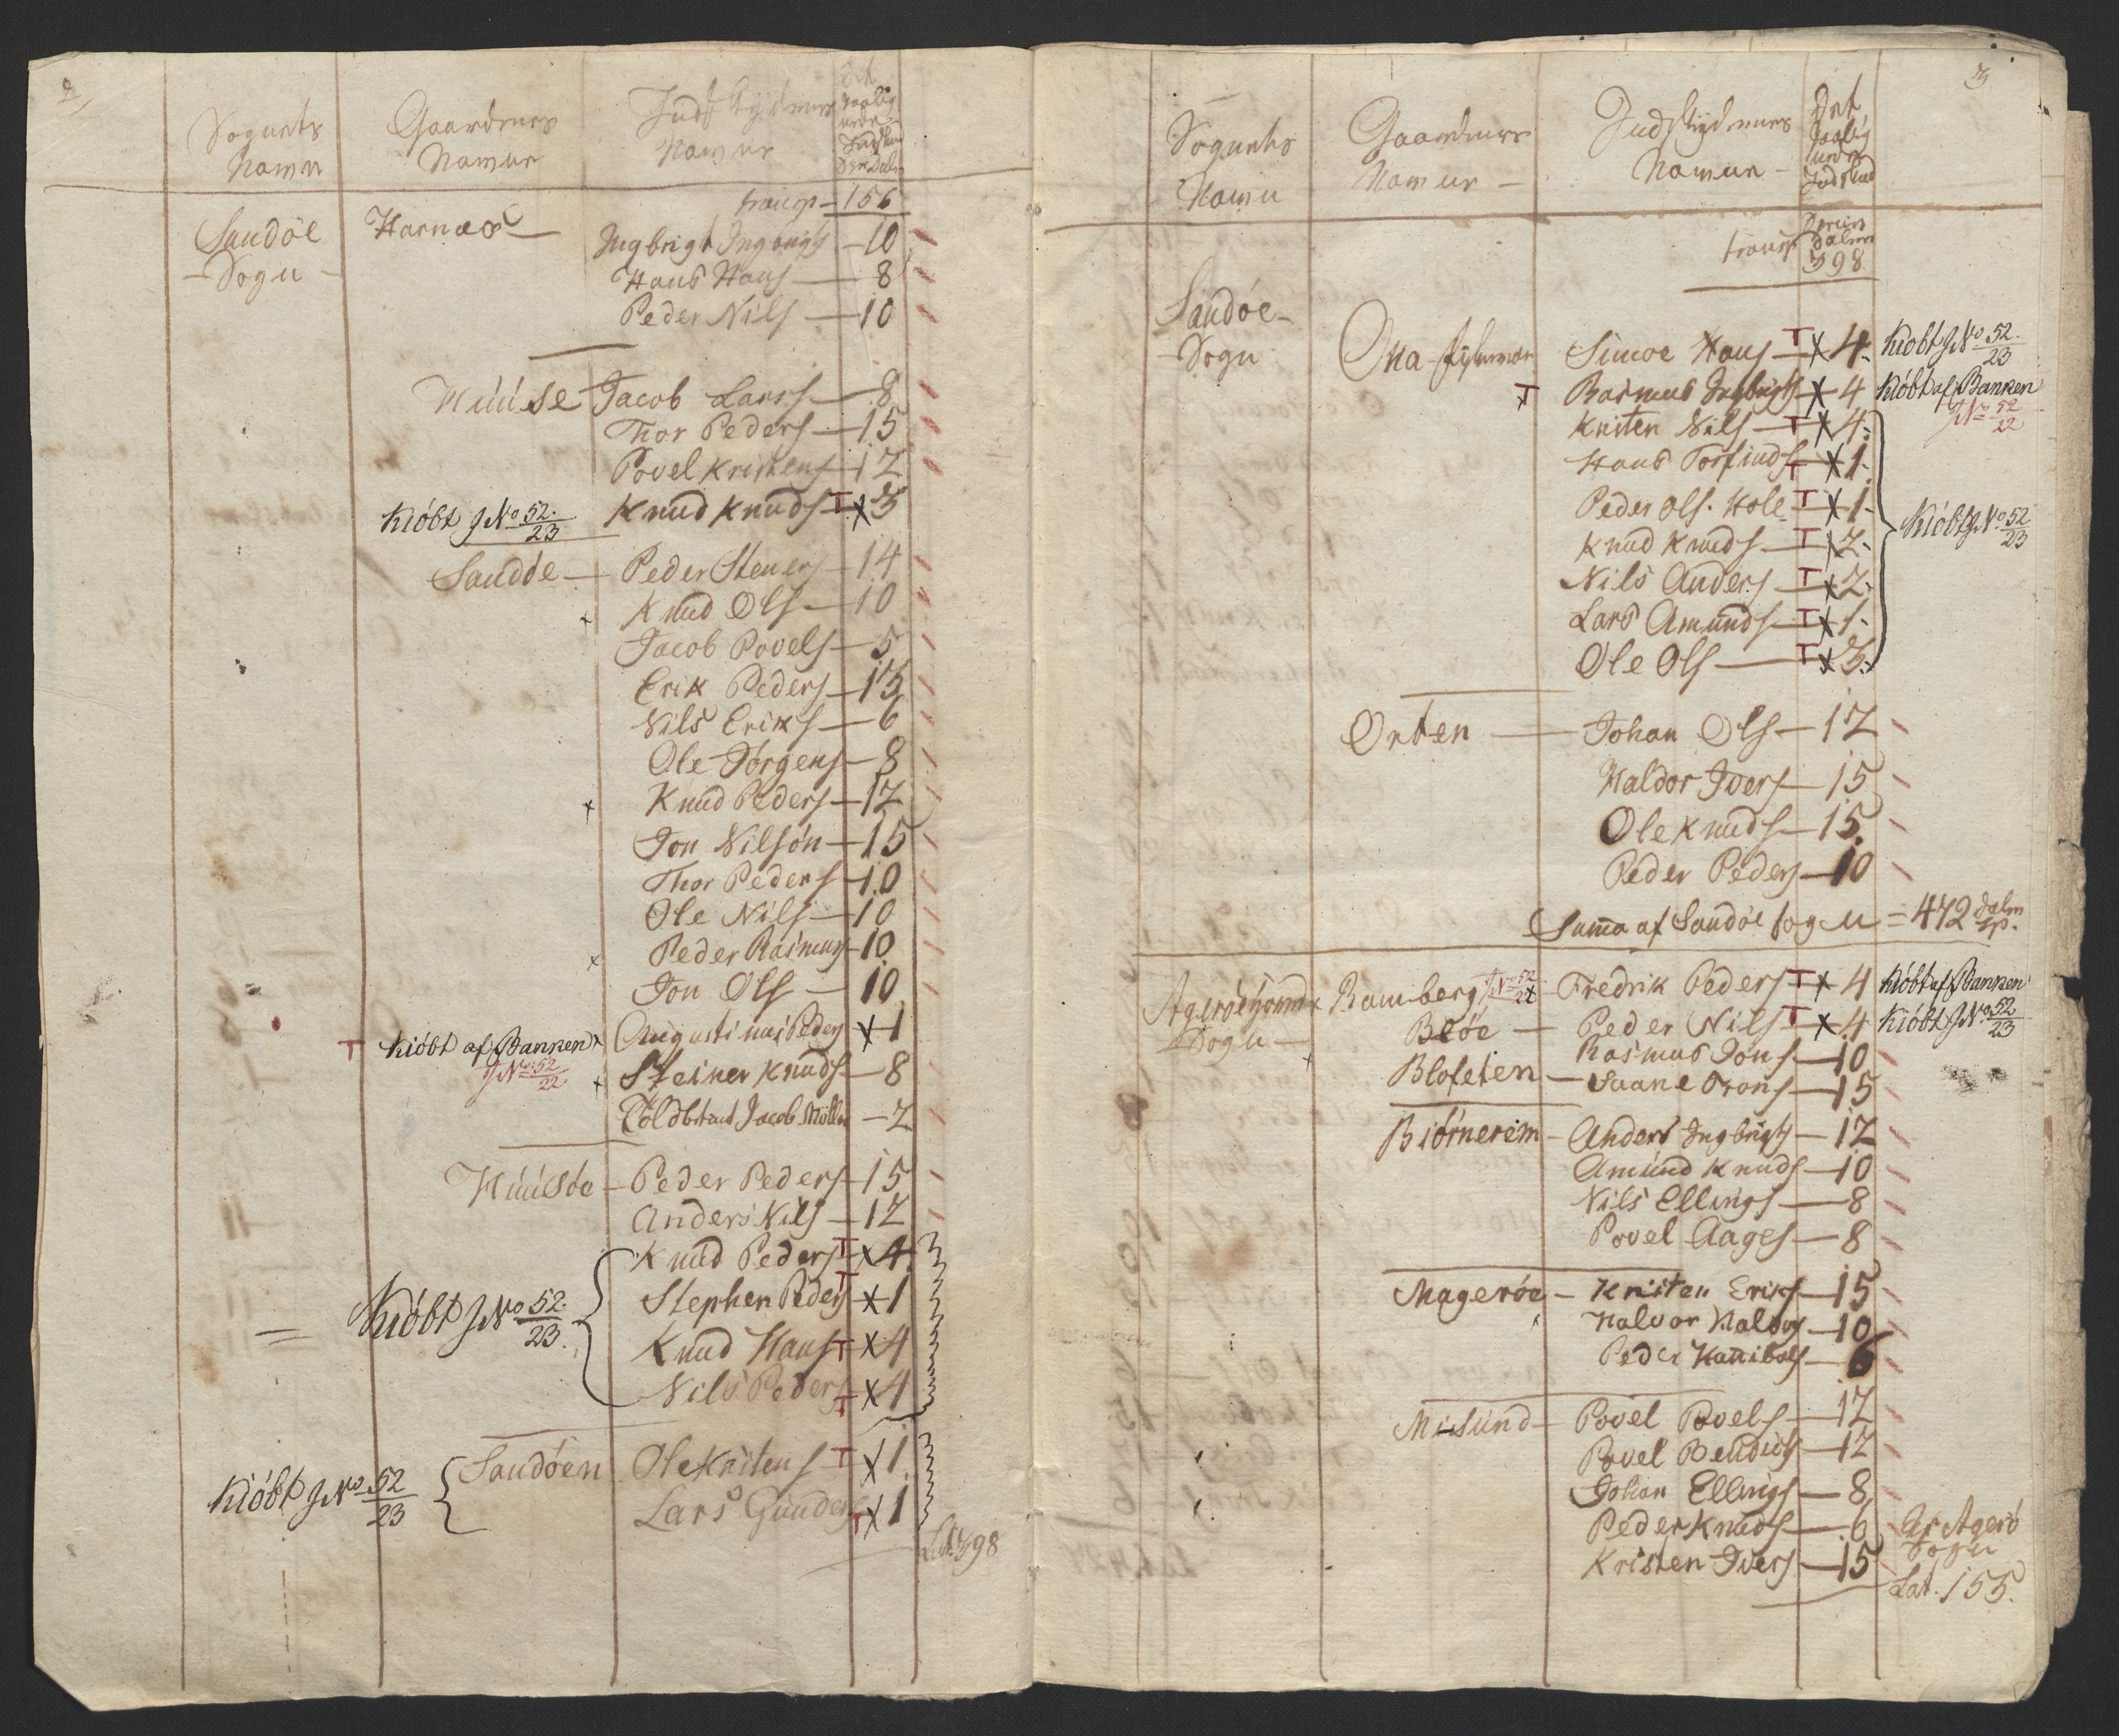 2
Sognets Navn
Gaardenes Navne
Indskyderens Navne
transp — 156
Sandøe Sogn
Harnæs — Ingbrigt Ingbrigts — 10
Hans Hans — 8
Peder Nils — 10
Huuse Jacob Lars — 8
Thor Peders — 15
Povel Kristens — 12
Kiöbt J No 52/23 Knud Knuds T x 3
Sandøe — Peder Steners — 14
x Knud Ols — 10
Jacob Povels — 5
Erik Peders — 15
Nils Eriks — 6
Ole Jörgens — 8
x Knud Peders — 12
Jon Nilsön — 15
Thor Peders — 10
Ole Nils — 10
x Peder Rasmus — 10
Jon Ols — 10
T Kiöbt af Banken Augustinus Peders x 1
J No 52/22 x Steiner Knuds — 8
Jacob Möller — 2
Huusøe — Peder Peders — 15
Anders Nils — 12
Knud Peders T x 4
Stephen Peders T x 1
Kiöbt J No 52/23
Knud Hans T x 4
Nils Peders T x 4
Kiöbt J No 52/23 Sandøen Ole Kristens T x 1
Lars Gunders T x 1
Lat. 398
3
Sognets Navn
Gaardenes Navne —
Indskydernes Navne —
Det Jarlig Indskud
transp 398
Sandøe Sogn
Ona Simoe Hans T x 4 Kiöbt J No 52/23
T Rasmus Ingbrigts x 4 Kiöbt af Banken
J No 52/22
Kristen Nils T x 4
Hans Torfinds T x 1
Peder Ols. Hole T x 1
Knud Knuds T x 2 Kiöbt J No 52/23
Nils Anders T x 2
Lars Amunds T x 1
Ole Ols T x 3
Orten — Johan Ols — 12
Haldor Ivers — 15
Ole Knuds — 15
Peder Peders — 10
Summa af Sandøe sogn = 472 daler sp.
Sogn —
Ramberg J No 52/22 Fredrik Peders T x 4 Kiöbt af Banken
Bløe — Peder Nils T x 4 Kiöbt J No 52/23
Rasmus Jons — 10
Blofelen — Saane Orons — 15
Biörnerem — Anders Ingbrigts — 12
Amund Knuds — 10
Nils Ellings — 8
Povel Aages — 8
Magerøe — Kristen Eriks — 15
Halvor Halvors — 10
Peder Hanibals — 6
Misund — Povel Povels — 12
Povel Bendicts — 12
Johan Ellings — 8
Peder Knuds — 6
Kristen Ivers — 15
Af Agerö Sogn
Lat. 155.